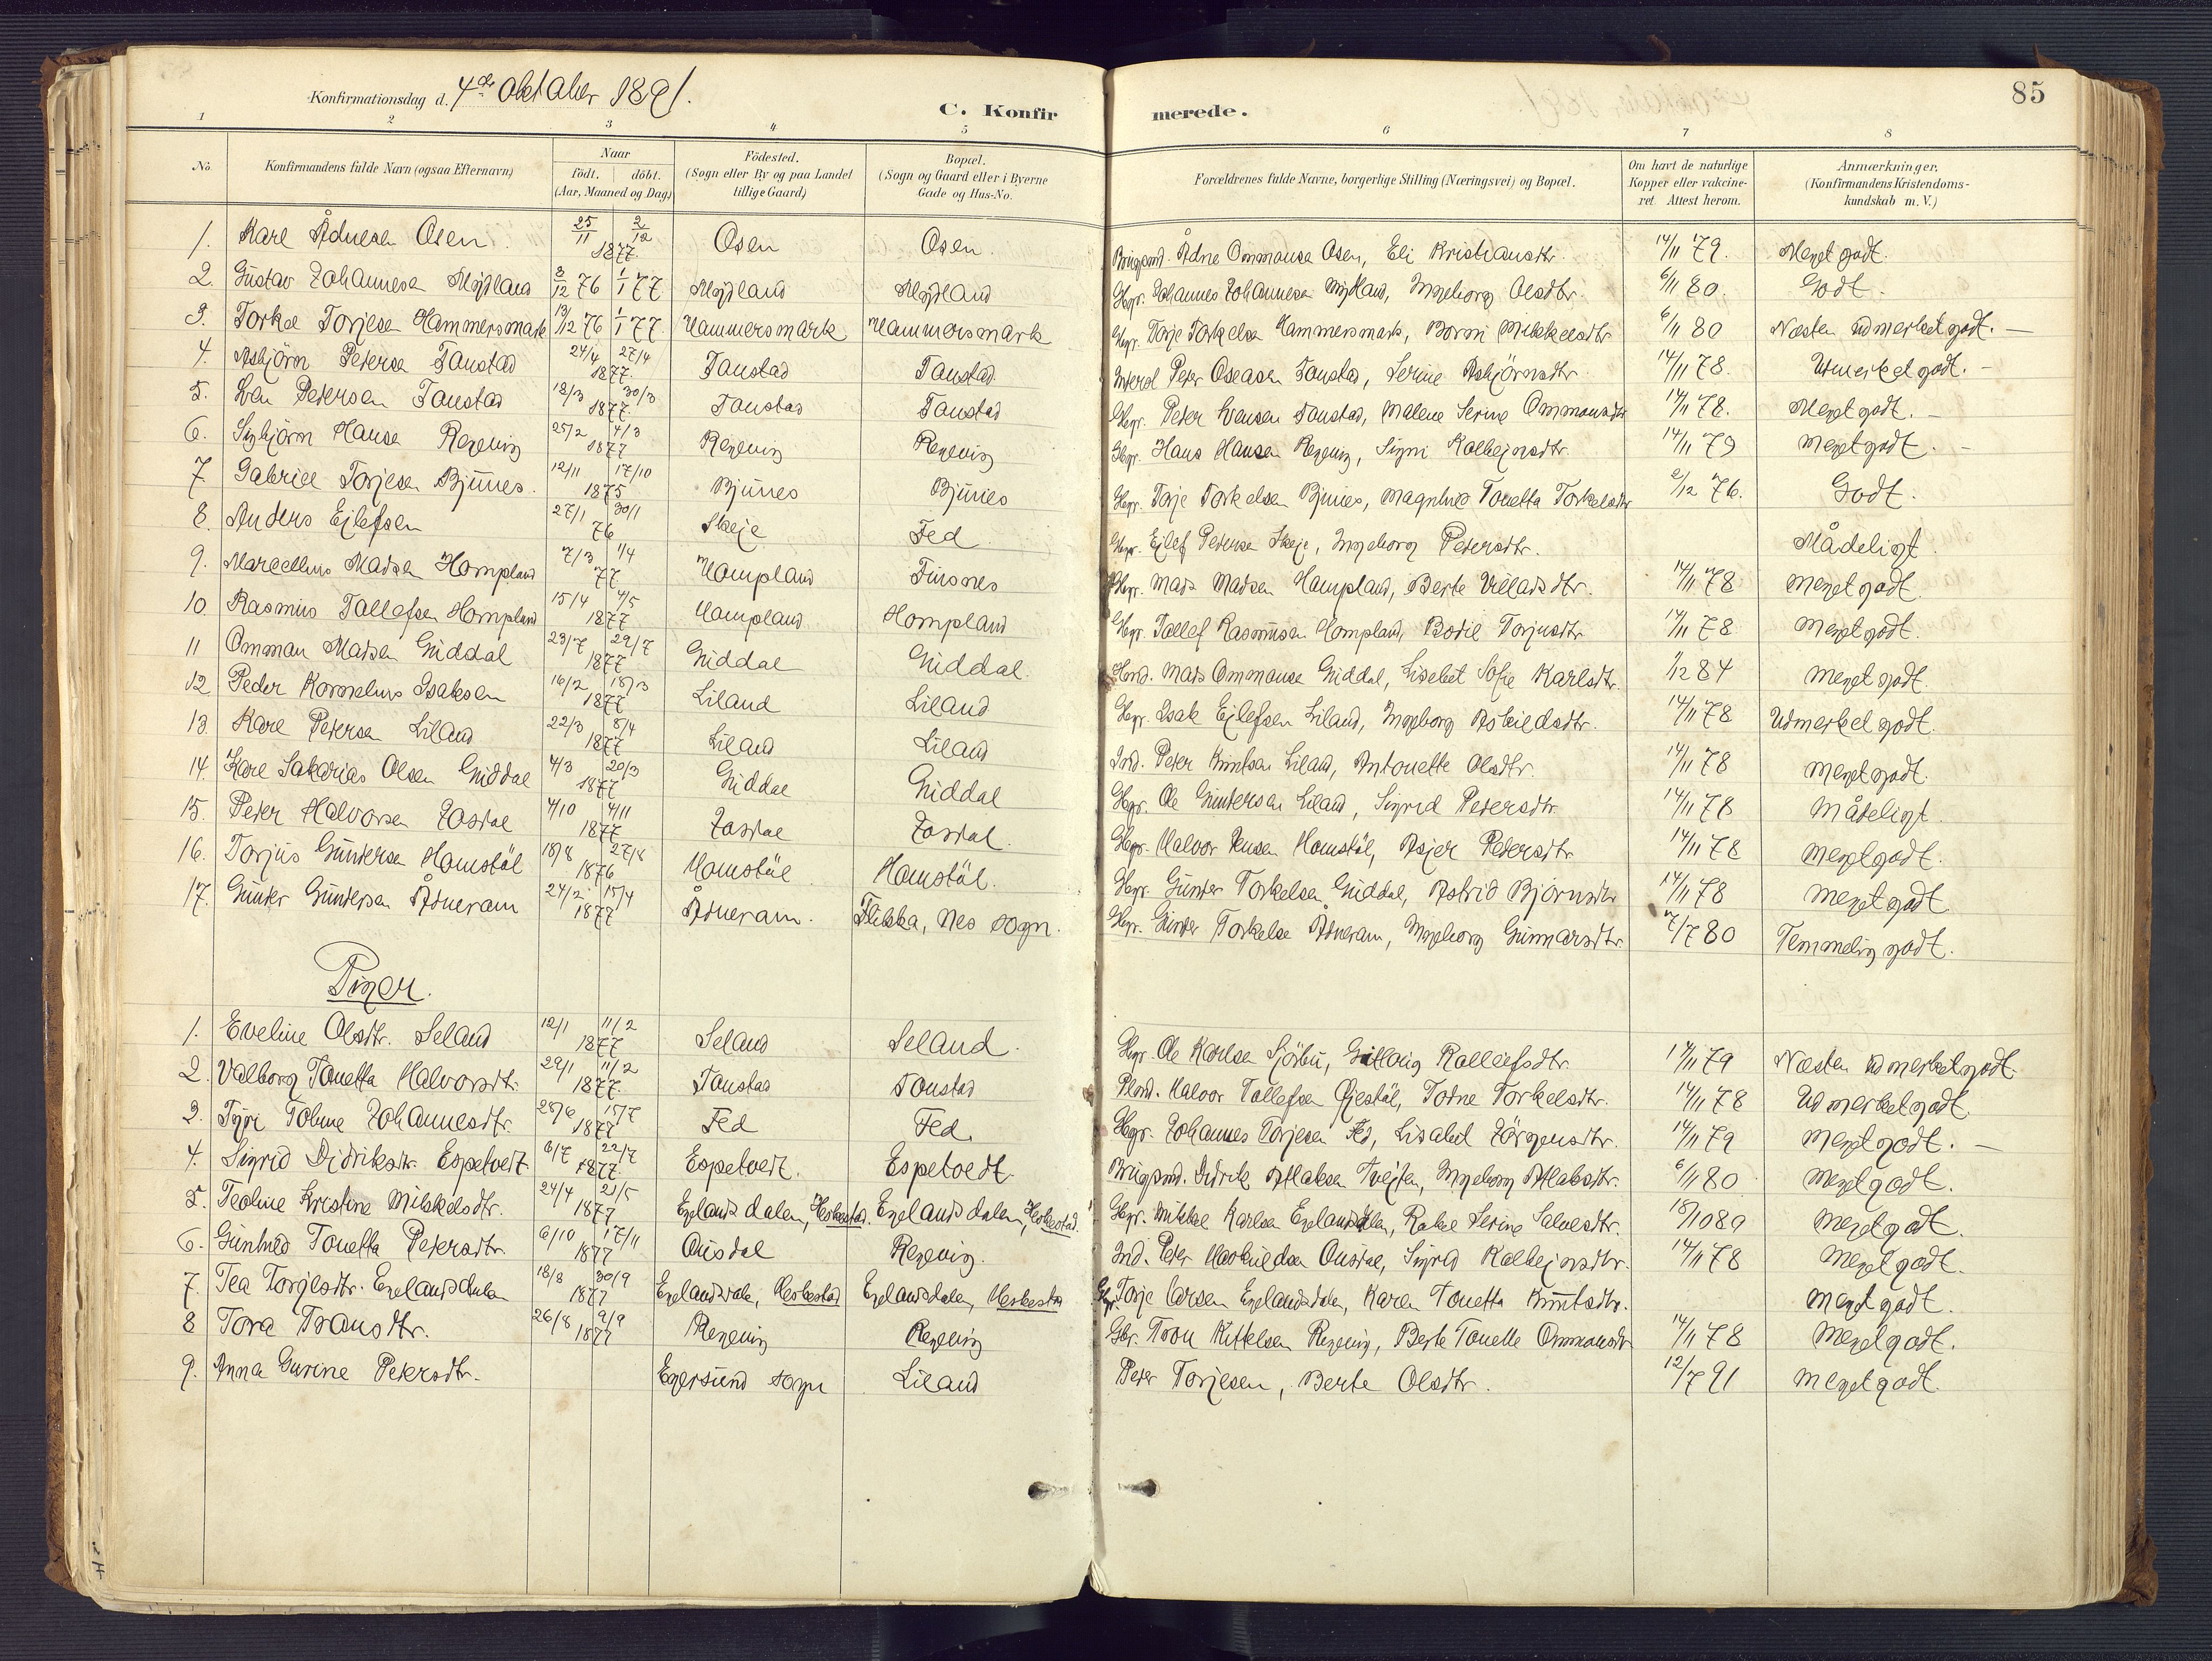 85
Konfirmationsdag d. 4de Oktober 1891.
C. Konfirmerede.
1 2 3 4 5 6 7 8
No. Konfirmandens fulde Navn (ogsaa Efternavn) Naar födt. döbt. (Aar, Maaned og Dag) Födested. (Sogn eller By og paa Landet tillige Gaard) Bopæl. (Sogn og Gaard eller i Byerne Gade og Hus-No. Forældrenes fulde Navne, borgerlige Stilling (Næringsvei) og Bopæl. Om havt de naturlige Kopper eller vakcineret Attest herom. Anmærkninger. (Konfirmandens Kristendomskundskab m. V.)
1. Karl Ådnesen Osen 25/11 2/12 1877. Osen Osen. Brugsmd. Ådne Ommonsen Osen, Eli Kristiansdtr. 14/11 79. Meget godt.
2. Gustav Johannesen Mydland 3/12 76 1/1 77 Mydland Mydland Gbgr. Johannes Johannesen Mydland, Ingeborg Olsdtr. 6/11 80. Godt.
3. Torkel Torjesen Hammersmark 19/12 76 1/1 77. Hammersmark Hammersmark Gbgr. Torje Torkelsen Hammersmark, Borni Mikkelsdtr. 6/11 80 Næsten udmerket godt. —
4. Asbjörn Petersen Tonstad 24/4 27/4 1877. Tonstad Tonstad. Peter Oseasen Tonstad, Serine Asbjörnsdtr. 14/11 78. Udmerket godt. -
5. Sven Petersen Tonstad 12/3 30/3 1877. Tonstad Tonstad Gbgr. Peter Svensen Tonstad, Malene Serine Ommonsdtr 14/11 78. Meget godt. -
6. Sigbjörn Hansen Regevig 25/2 4/3 1877 Regevig Regevig Gbgr. Hans Hansen Regevig, Signi Kolbejnsdtr. 14/11 79 Meget godt. -
7. Gabriel Torjesen Bjunes. 12/11 17/10 1875 Bjunes Bjunes Gbgr. Torje Torkelsen Bjunes, Magnhild Tonetta Torkelsdtr 2/12 76. Godt.
8. Anders Ejlefsen 27/1 30/1 76 Skeje Fed Gbgr. Ejlef Petersen Skeje, Ingeborg Petersdtr. Mådeligt.
9. Marcellius Madsen Hompland 7/3 1/4 77 Hompland Finsnes Gbgr. Mads Madsen Hompland, Berte Villadsdtr. 14/11 78 Meget godt.
10. Rasmus Tallefsen Hompland 15/4 4/5 1877 Hompland Hompland Gbgr. Tallef Rasmusen Hompland, Bodil Torjusdtr 14/11 78 Meget godt.
11 Omman Madsen Guddal 23/7 29/7 1877 Guddal Guddal. Mads Ommonsen Guddal, Lisebet Sofie Karlsdtr. 1/12 84 Meget godt.
12 Peder Kornelius Isaksen 16/2 18/3 1877 Liland Liland Gbgr. Isak Ejlefsen Liland, Ingeborg Askildsdtr. 14/11 78 Udmerket godt.
13. Karl Petersen Liland 22/3 8/4 1877 Liland Liland Ind. Peter Knutsen Liland, Antonette Olsdtr. 14/11 78 Meget godt.
14. Karl Sakarias Olsen Guddal 4/3 20/3 1877 Guddal Guddal Gbgr. Ole Guntersen Liland, Sigrid Petersdtr. 14/11 78 Mådeligt.
15. Peter Halvorsen Josdal 4/10 4/11 1877 Josdal Josdal. Gbgr. Halvor Jensen Homstöl, Asjer Petersdtr 14/11 78 Meget godt.
16. Torjus Guntersen Homstöl 18/8 27/8 1876 Homstöl Homstöl. Gbgr. Gunter Torkelsen Guddal, Astrid Björnsdtr 14/11 78 Meget godt
17. Gunter Guntersen Ådneram 24/2 15/4 1877 Ådneram. Flikka, Nes sogn. Gbgr. Gunter Torkelsen Ådneram, Ingeborg Gunnarsdtr. 7/7 80 Temmelig godt.
Piger.
1. Eveline Olsdtr. Seland 12/1 11/2 1877 Seland Seland. Gbgr. Ole Karlsen Sjöbu, Rolleifsdtr. 14/11 79 Næsten udmerket godt.
2. Valborg Tonetta Halvorsdtr. 29/1 11/2 1877. Tonstad Tonstad Halvor Tallefsen Todne Torkelsdtr. 14/11 78 Udmerket godt.
3. Tyri Toline Johannesdtr. 25/6 15/7 1877 Fed Fed. Gbgr. Johannes Torjesen Fed, Lisabet Jörgensdtr. 14/11 79 Meget godt. —
4. Sigrid Didriksdtr. Espetvedt 6/7 22/7 1877. Espetvedt. Espetvedt. Brugsmd. Didrik Atlaksen Tvejten, Ingeborg Atlaksdtr. 6/11 80 Meget godt.
5. Teoline Kristine Mikkelsdtr. 24/4 21/5 1877 Egelandsdalen, Herbestad. Egelandsdalen, Herbestad. Gbgr. Mikkel Karlsen Egelandsdalen, Rakel Serine Salvesdtr. 18/10 89 Meget godt.
6. Gunhild Tonetta Petersdtr. 6/10 17/11 1877 Ousdal Regevig. Ind. Peter Ousdal, Sigrid Kolbejnsdtr. 14/11 78 Meget godt.
7. Tea Torjesdtr. Egelandsdalen 18/8 30/9 1877 Egelandsdale, Herbestad Egelandsdalen, Herbestad Gbgr. Torje Larsen Egelandsdalen, Karen Tonetta Knutsdtr. Meget godt.
8 Tora Tronsdtr. 26/8 9/9 1877 Regevig Regevig Gbr. Tron Kittelsen Regevig, Berte Tonette Ommonsdtr 14/11 78 Meget godt.
9. Anna Gurine Petersdtr. Egersund sogn Liland Peter Torjesen, Berte Olsdtr. 12/7 91 Meget godt.